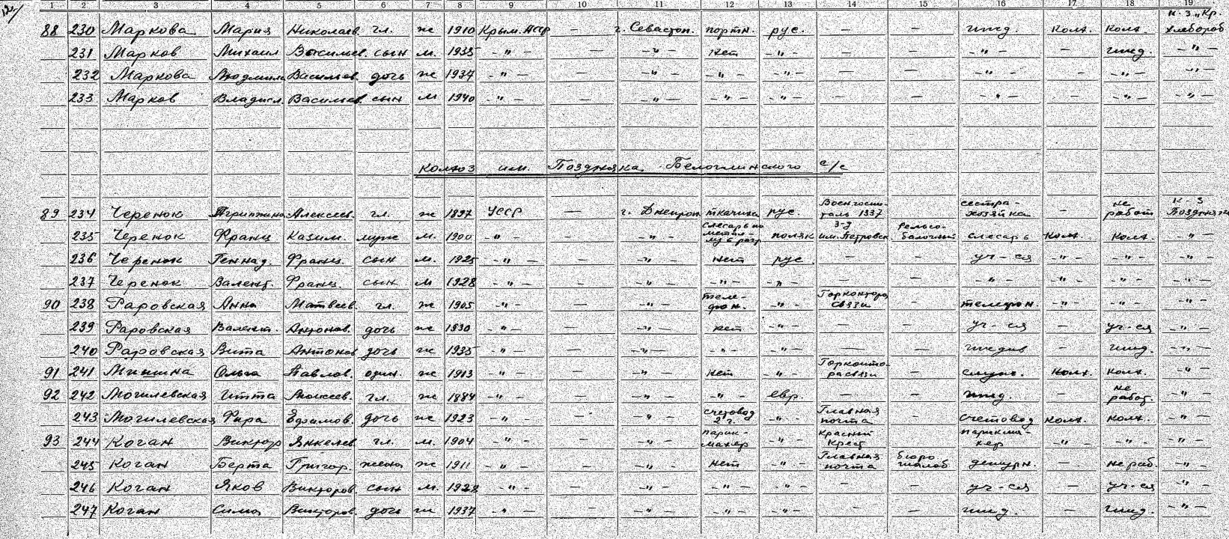 1 2 3 4 5 6 7 8 9 10 11 12 13 14 15 16 17 18 19
88 230 Маркова Мария Николаев. гл. ж 1910 Крым. АССР — г. Севастоп. портн. рус. — — ижд. колх. колх. к-з "Кр. хлебороб
231 Марков Михаил Васильев. сын м. 1935 -"- — -"- нет -"- — — -"- — ижд. -"-
232 Маркова Людмила Васильев. дочь ж 1937 -"- — -"- -"- -"- — — -"- — -"- -"-
233 Марков Владисл. Васильев. сын м. 1940 -"- — -"- -"- -"- — — -"- — -"- -"-
колхоз им. Поздняка Белоглинского с/с
89 234 Черенок Агриппина Алексеев. гл. ж 1897 УССР — г. Днепроп. ткачиха рус. Военгоспиталь 1337 — сестра-хозяйка — не работ. к-з Поздняка
235 Черенок Франц Казим. муж м. 1900 -"- — -"- слесарь по поляк з-д им. Петровск. Рельсо-балочный слесарь колх. колх. -"-
236 Черенок Геннад. Франц. сын м 1925 -"- — -"- нет рус. — — уч-ся -"- -"- -"-
237 Черенок Валент. Франц. сын м 1928 -"- — -"- -"- -"- — — -"- -"- -"- -"-
90 238 Раровская Анна Матвеев. гл. ж 1905 -"- — -"- телефон. -"- Горконтора связи — телефон — -"- -"-
239 Раровская Валент. Антонов. дочь ж 1930 -"- — -"- нет -"- — — уч-ся — уч-ся -"-
240 Раровская Вита Антонов дочь ж 1935 -"- — -"- -"- -"- — — — ижд. -"-
91 241 Мишина Ольга Павлов. один. ж 1913 -"- — -"- нет -"- Горконтора связи — служ. колх. колх. -"-
92 242 Могилевская Итта Моисеев. гл. ж 1884 -"- — -"- -"- евр. — — ижд. — не работ. -"-
243 Могилевская Фира Ефимов. дочь ж 1923 -"- — -"- счетовод -"- Главная почта — счетовод колх. колх. -"-
93 244 Коган Виктор Янкелев. гл. м. 1904 -"- — -"- парикмахер -"- Красный Крест — парикмахер -"- -"- -"-
245 Коган Берта Григор. жена ж 1911 -"- — -"- нет -"- Главная почта бюро жалоб дежурн. — не раб. -"-
246 Коган Яков Викторов. сын м. -"- — -"- -"- -"- — — уч-ся — уч-ся -"-
247 Коган Сима Викторов. дочь ж 1937 -"- — -"- -"- -"- — — ижд. — ижд. -"-